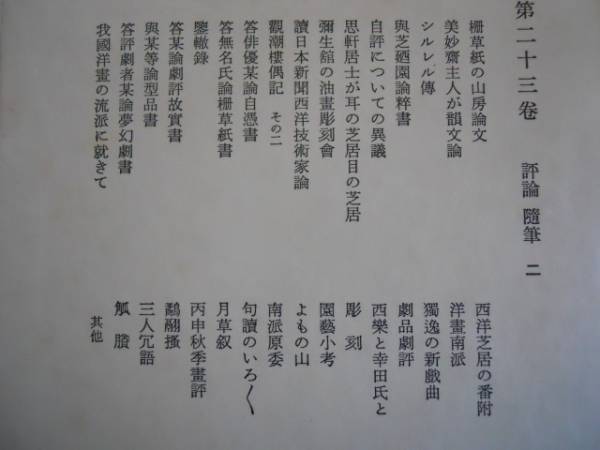 第二十三卷
評論 隨筆 二
柵草紙の山房論文
美妙齋主人が韻文論
シルレル傳
與芝廼園論粹書
自評についての異議
思軒居士が耳の芝居目の芝居
彌生舘の油畫彫刻會
讀日本新聞西洋技術家論
觀潮樓偶記 その二
答俳優某論自憑書
答無名氏論柵草紙書
鑒轍錄
答某論劇評故實書
與某等論型品書
答評劇者某論夢幻劇書
我國洋畫の流派に就きて
西洋芝居の番附
洋畫南派
獨逸の新戲曲
劇品劇評
西樂と幸田氏と
彫刻
園藝小考
よもの山
南派原委
句讀のいろ〱
月草叙
丙申秋季畫評
鷸翮搔
三人冗語
觚賸
其他